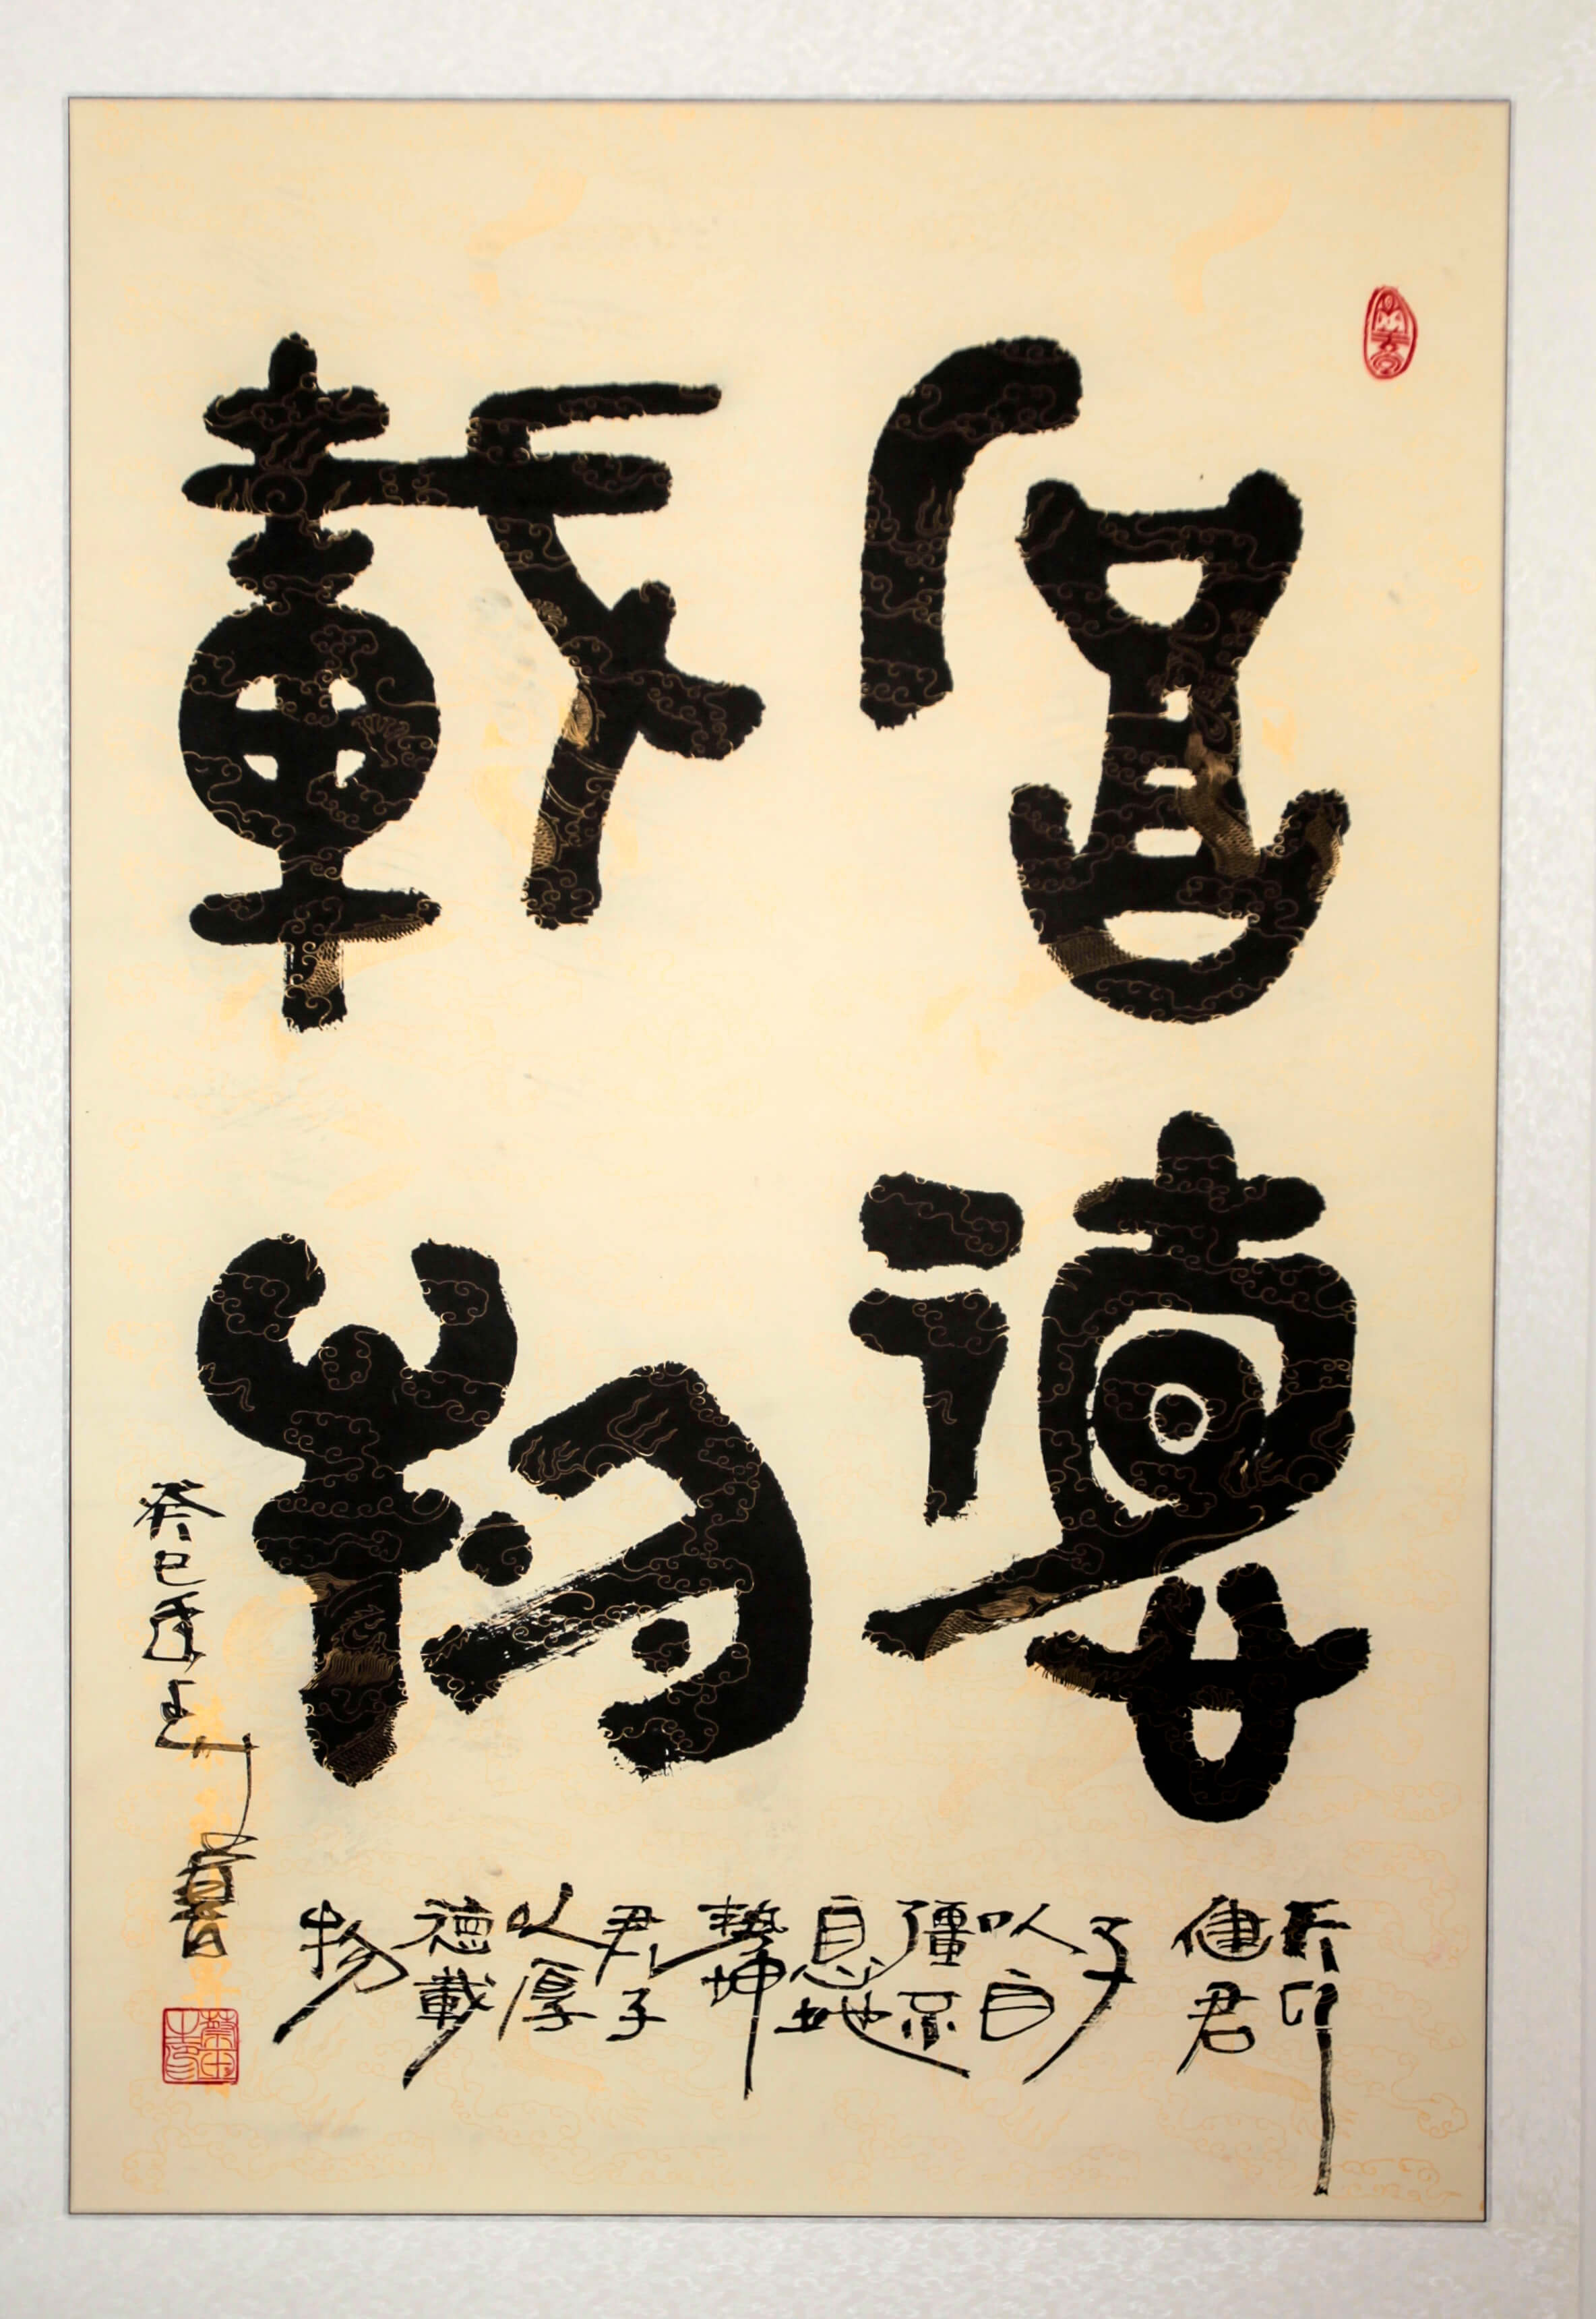 厚德
載物
天行
健君
子
以自
彊不
息地
勢坤
君子
以厚
德載
物
癸巳